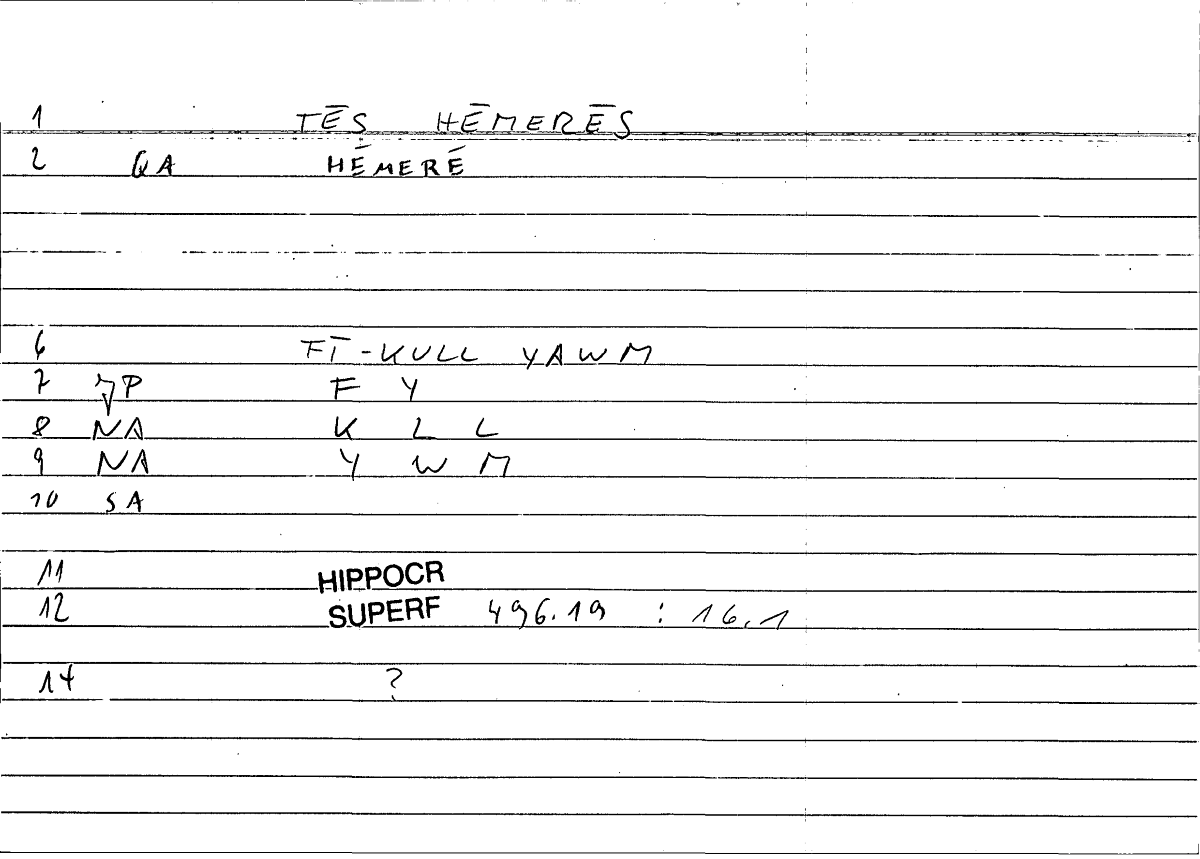 1 TĒS HĒMERĒS
2 QA HĒMERĒ
6 FĪ-KULL YAWM
7 P F Y
8 NA K L L
9 NA Y W M
10 SA
11 HIPPOCR
12 SUPERF 496.19 : 16,1
14 ?